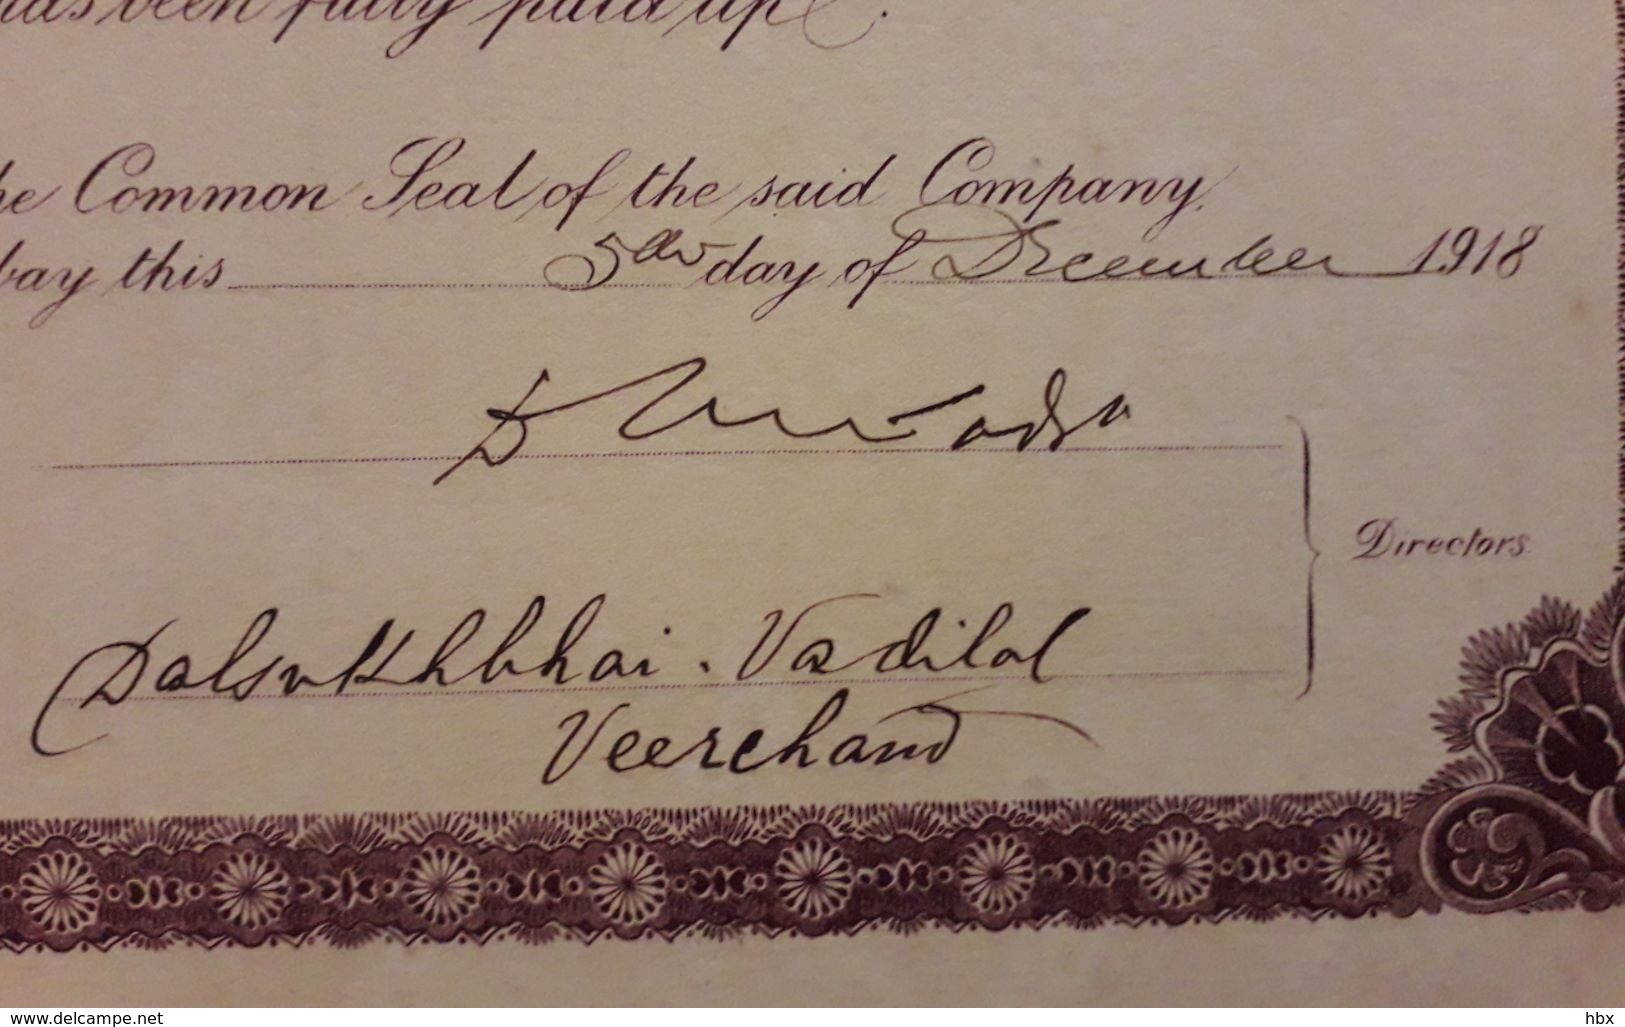 has been fully paid up
he Common Seal of the said Company,
bay this 5th day of December 1918
Directors.
Dalsukhbhai. Vadilal
Veerchand
www.delcampe.net hbx